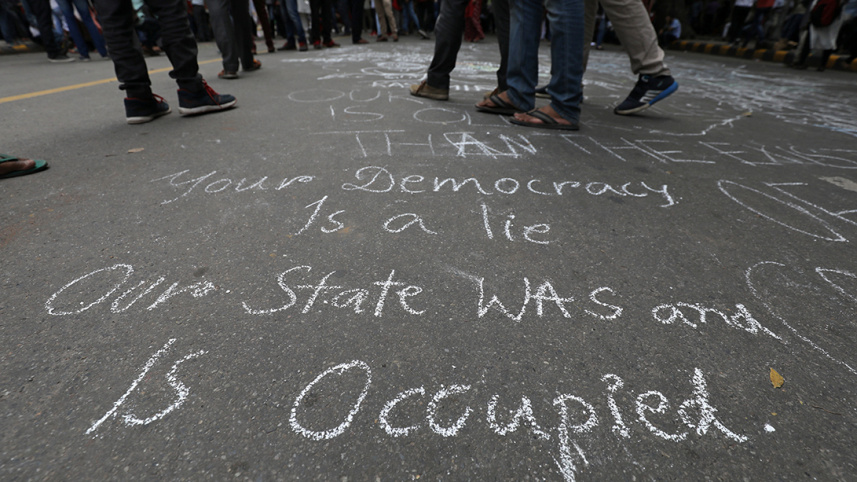 OUR
IS O
THAN THE
Your Democracy
Is a lie
Our State WAS and
Is Occupied.